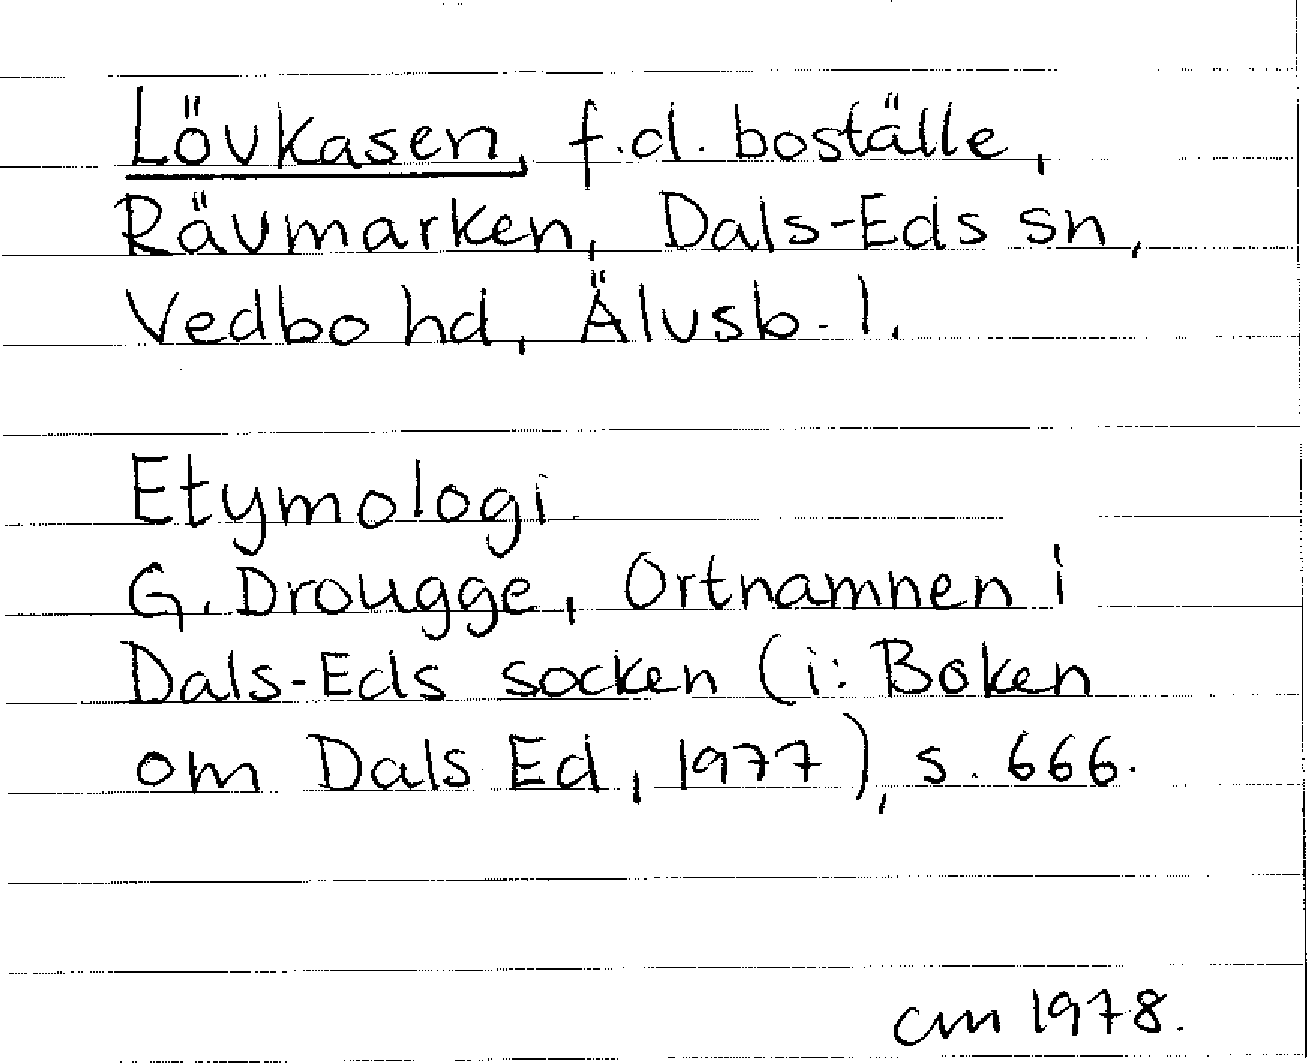 Lövkasen, f.d. boställe,
Rävmarken, Dals-Eds sn,
Vedbo hd, Älvsb. l.
Etymologi
G. Drougge, Ortnamnen i
Dals-Eds socken (i: Boken
om Dals Ed, 1977), s. 666.
cm 1978.